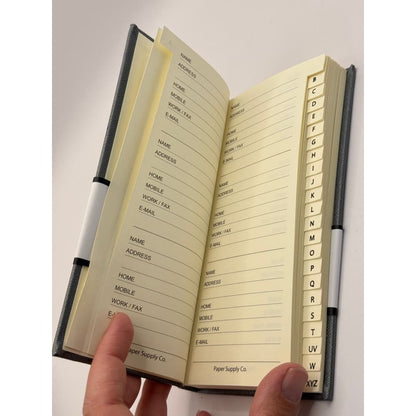 NAME
ADDRESS
HOME
MOBILE
WORK / FAX
E-MAIL
NAME
ADDRESS
HOME
MOBILE
WORK / FAX
E-MAIL
NAME
ADDRESS
HOME
MOBILE
WORK / FAX
Paper Supply Co.
NAME
ADDRESS
HOME
MOBILE
WORK / FAX
E-MAIL
NAME
ADDRESS
HOME
MOBILE
WORK / FAX
E-MAIL
NAME
ADDRESS
HOME
MOBILE
WORK / FAX
E-MAIL
Paper Supply Co.
B
C
D
E
F
G
H
I
J
K
L
N
M
O
P
Q
R
S
T
UV
W
XYZ